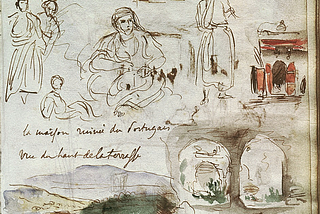 la maison ruinée du Portugais
vue du haut de la terrasse